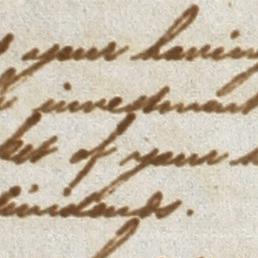 your having
investment
ket of your
dividends.